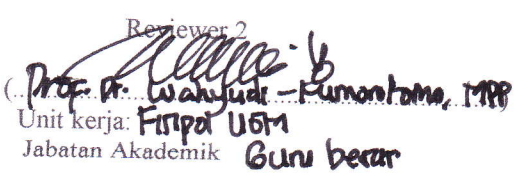 Reviewer 2
(Prof. Dr. Wahyudi - Kumorotomo, MPP)
Unit kerja: Fisipol UGM
Jabatan Akademik Guru besar